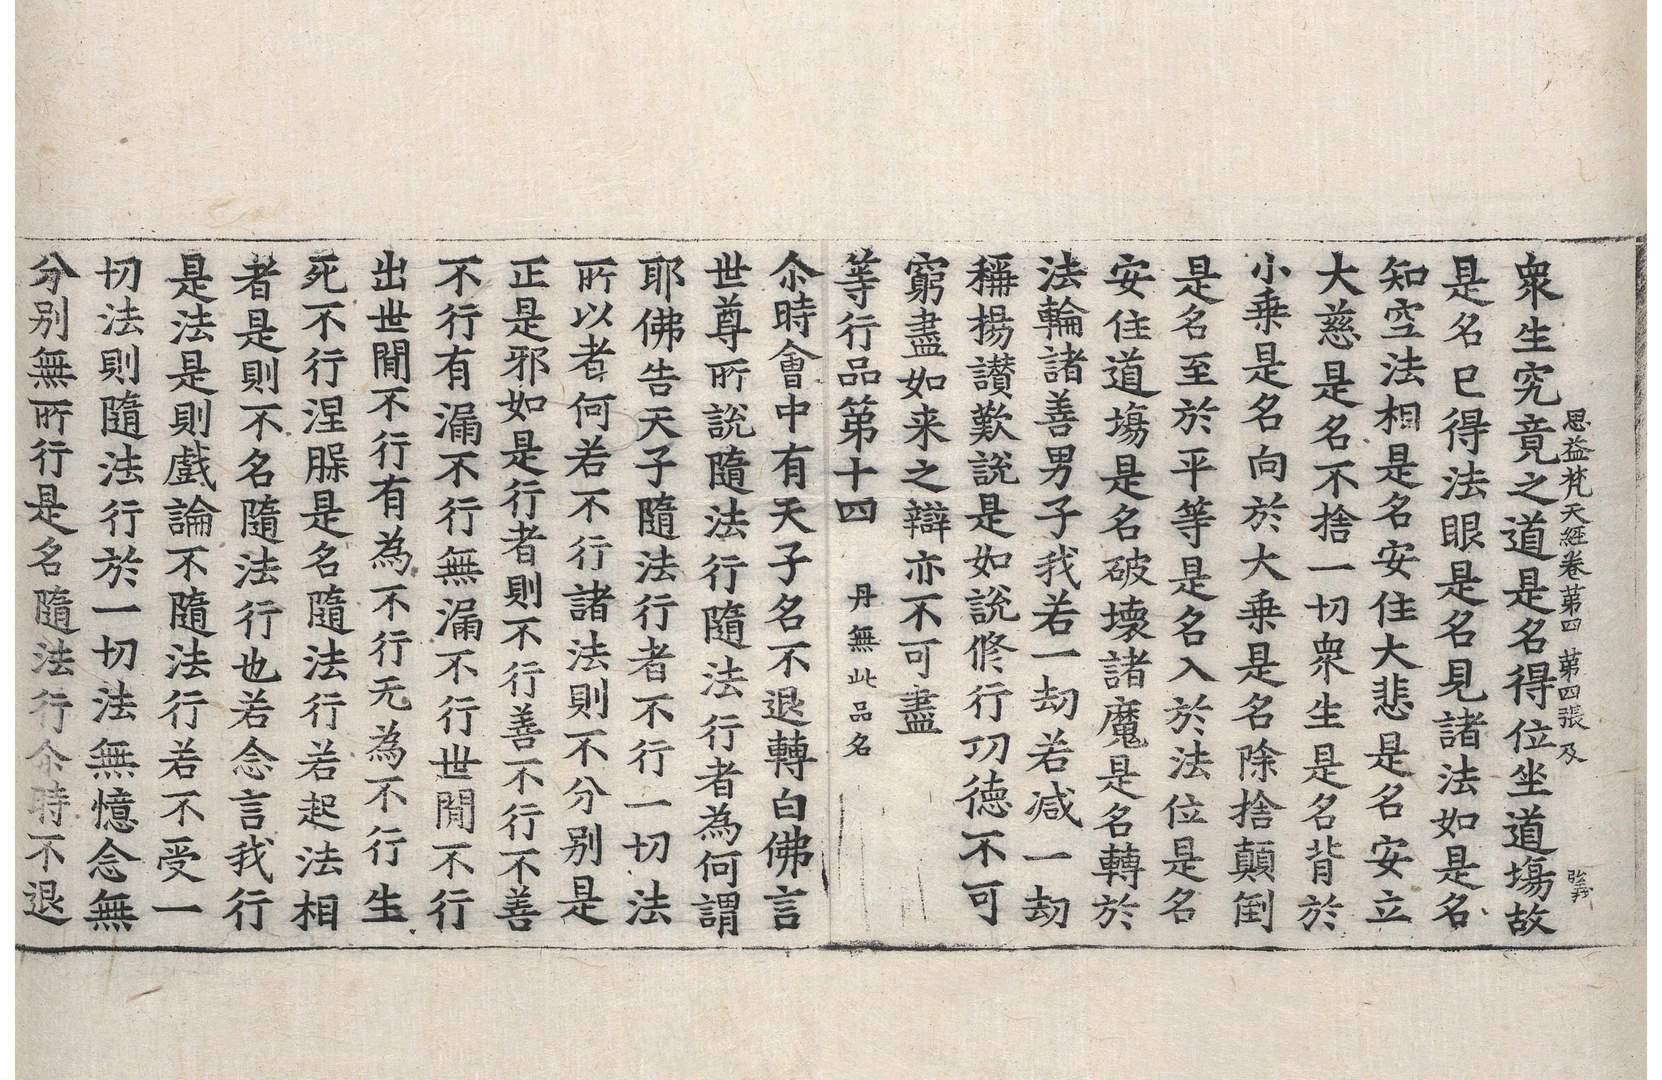 思益梵天經卷第四 第四張 及
衆生究竟之道是名得位坐道場故
是名已得法眼是名見諸法如是名
知空法相是名安住大悲是名安立
大慈是名不捨一切衆生是名背於
小乗是名向於大乗是名除捨顛倒
是名至於平等是名入於法位是名
安住道場是名破壞諸魔是名轉於
法輪諸善男子我若一劫若減一劫
稱揚讃歎說是如說修行功德不可
窮盡如来之辯亦不可盡
等行品第十四 丹無此品名
尒時會中有天子名不退轉白佛言
世尊所說隨法行隨法行者為何謂
耶佛告天子隨法行者不行一切法
所以者何若不行諸法則不分別是
正是邪如是行者則不行善不行不善
不行有漏不行無漏不行世閒不行
出世閒不行有為不行无為不行生
死不行涅槃是名隨法行若起法相
者是則不名隨法行也若念言我行
是法是則戲論不隨法行若不受一
切法則隨法行於一切法無憶念無
分別無所行是名隨法行尒時不退